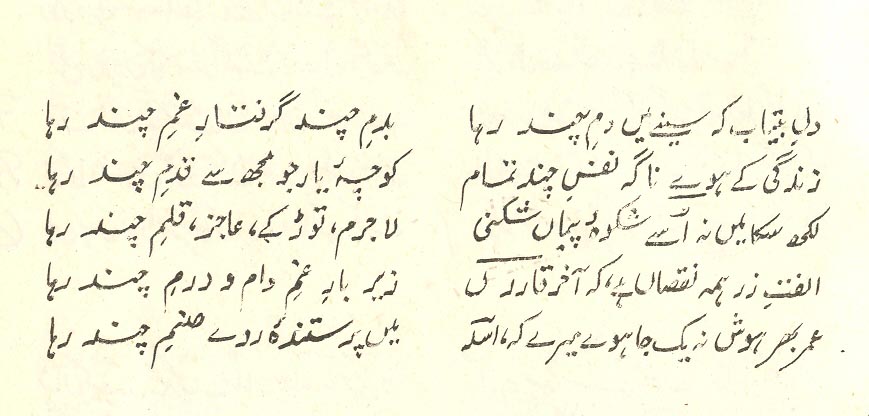 دلِ بیتاب کہ سینے میں دمِ چند رہا بدمِ چند گرفتارِ غمِ چند رہا
زندگی کے ہوے ناگہ نفسِ چند تمام کوچۂ یار جو مجھ سے قدمِ چند رہا
لکھ سکا میں نہ اُسے شکوہِ پیماں شکنی لاجرم، توڑ کے، عاجز، قلمِ چند رہا
الفتِ زر ہمہ نقصاں ہے، کہ آخر قاروں زیر بارِ غمِ دام و درمِ چند رہا
عمر بھر ہوش نہ یک جا ہوے میرے کہ، اسدؔ میں پرستندۂ روے صنمِ چند رہا